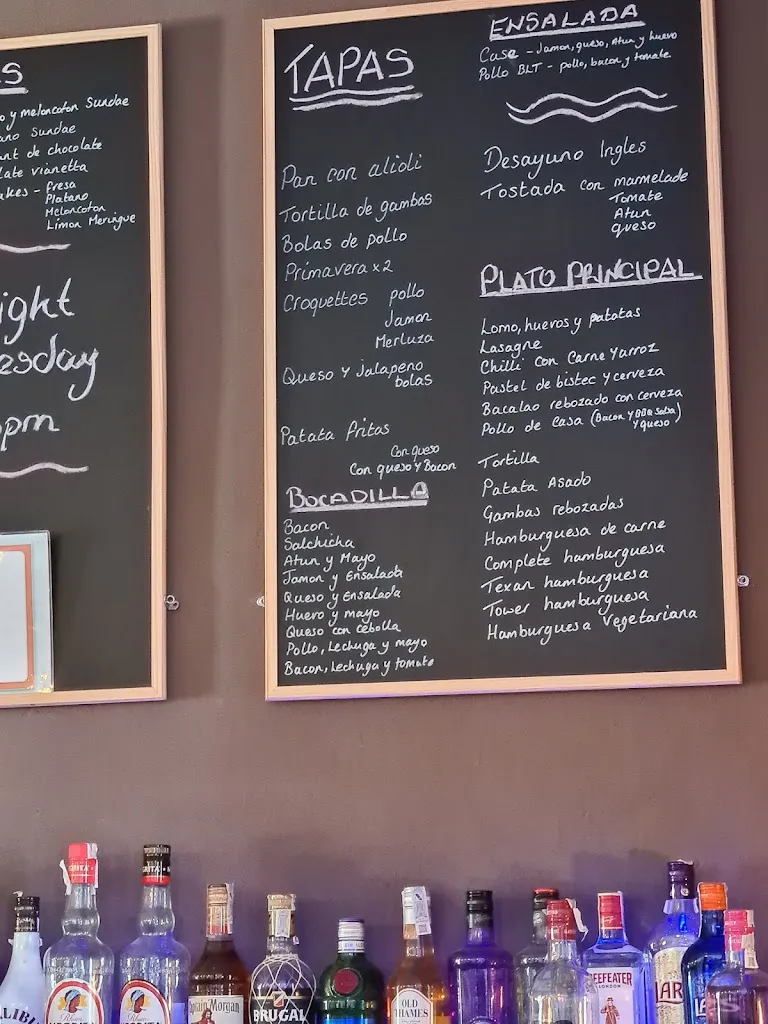 S
o y meloncoton Sundae
ano Sundae
ant de chocolate
late vianetta
akes - fresa
Platano
Meloncoton
Limon Meringue
ight
esday
pm
TAPAS
Pan con alioli
Tortilla de gambas
Bolas de pollo
Primavera x2
Croquettes pollo
Jamon
Merluza
Queso y Jalapeno
bolas
Patata fritas
Con queso
Con queso y Bacon
BOCADILLO
Bacon
Salchicha
Atun y Mayo
Jamon y Ensalada
Queso y Ensalada
Huero y mayo
Queso con cebolla
Pollo, Lechuga y mayo
Bacon, Lechuga y tomato
ENSALADA
Case - Jamon, queso, Atun y huevo
Pollo BLT - pollo, bacon y tomate
Desayuno Ingles
Tostada con marmelade
Tomate
Atun
queso
PLATO PRINCIPAL
Lomo, hueros y patatas
Lasagne
Chilli con Carne y arroz
Pastel de bistec y cerveza
Bacalao rebozado con cerveza
Pollo de casa (Bacon y BBQ Salsa)
y queso)
Tortilla
Patata Asado
Gambas rebozadas
Hamburguesa de carne
Complete hamburguesa
Texan hamburguesa
Tower hamburguesa
Hamburguesa Vegetariana
ALIBU
Captain Morgan
BRUGAL
OLD
THAMES
BEEFEATER
LONDON
LAR